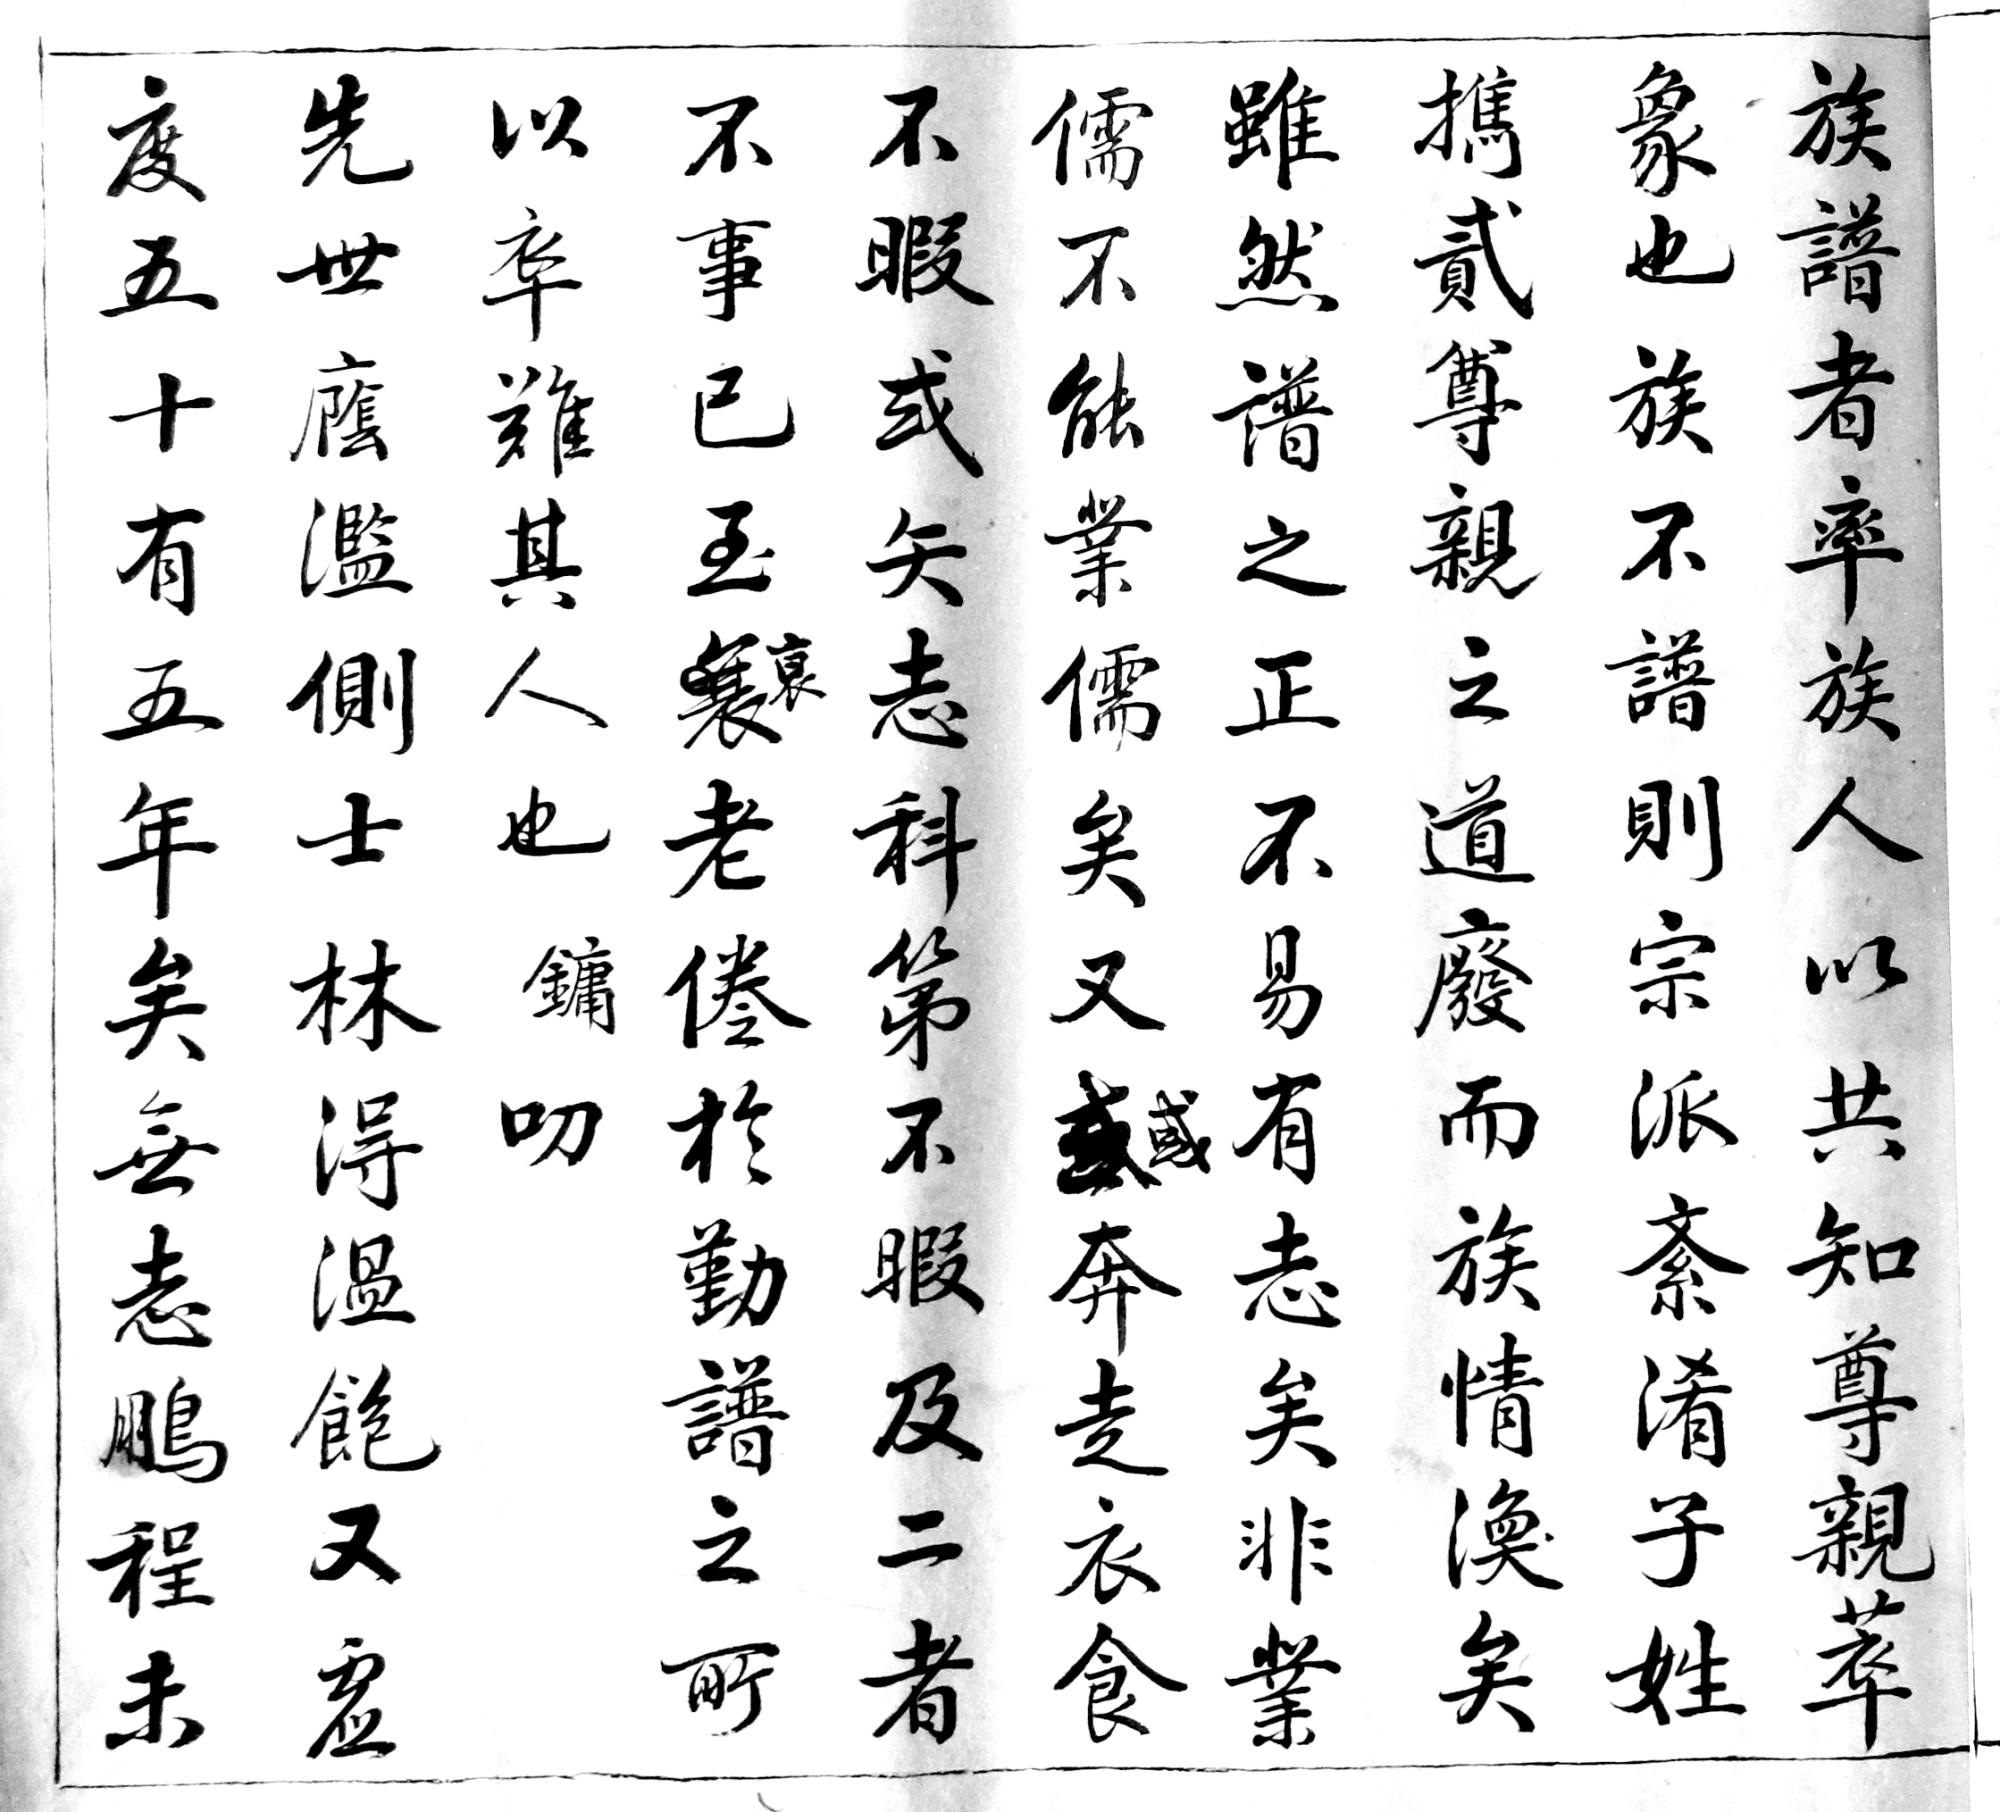 族譜者率族人以共知尊親萃
象也族不譜則宗派紊淆子姓
攜貳尊親之道廢而族情渙矣
雖然譜之正不易有志矣非業
儒不能業儒矣又或奔走衣食
不暇或矢志科第不暇及二者
不事已至衰老倦於勤譜之所
以卒難其人也鏞叨
先世廕濫側士林得溫飽又虛
度五十有五年矣無志鵬程未